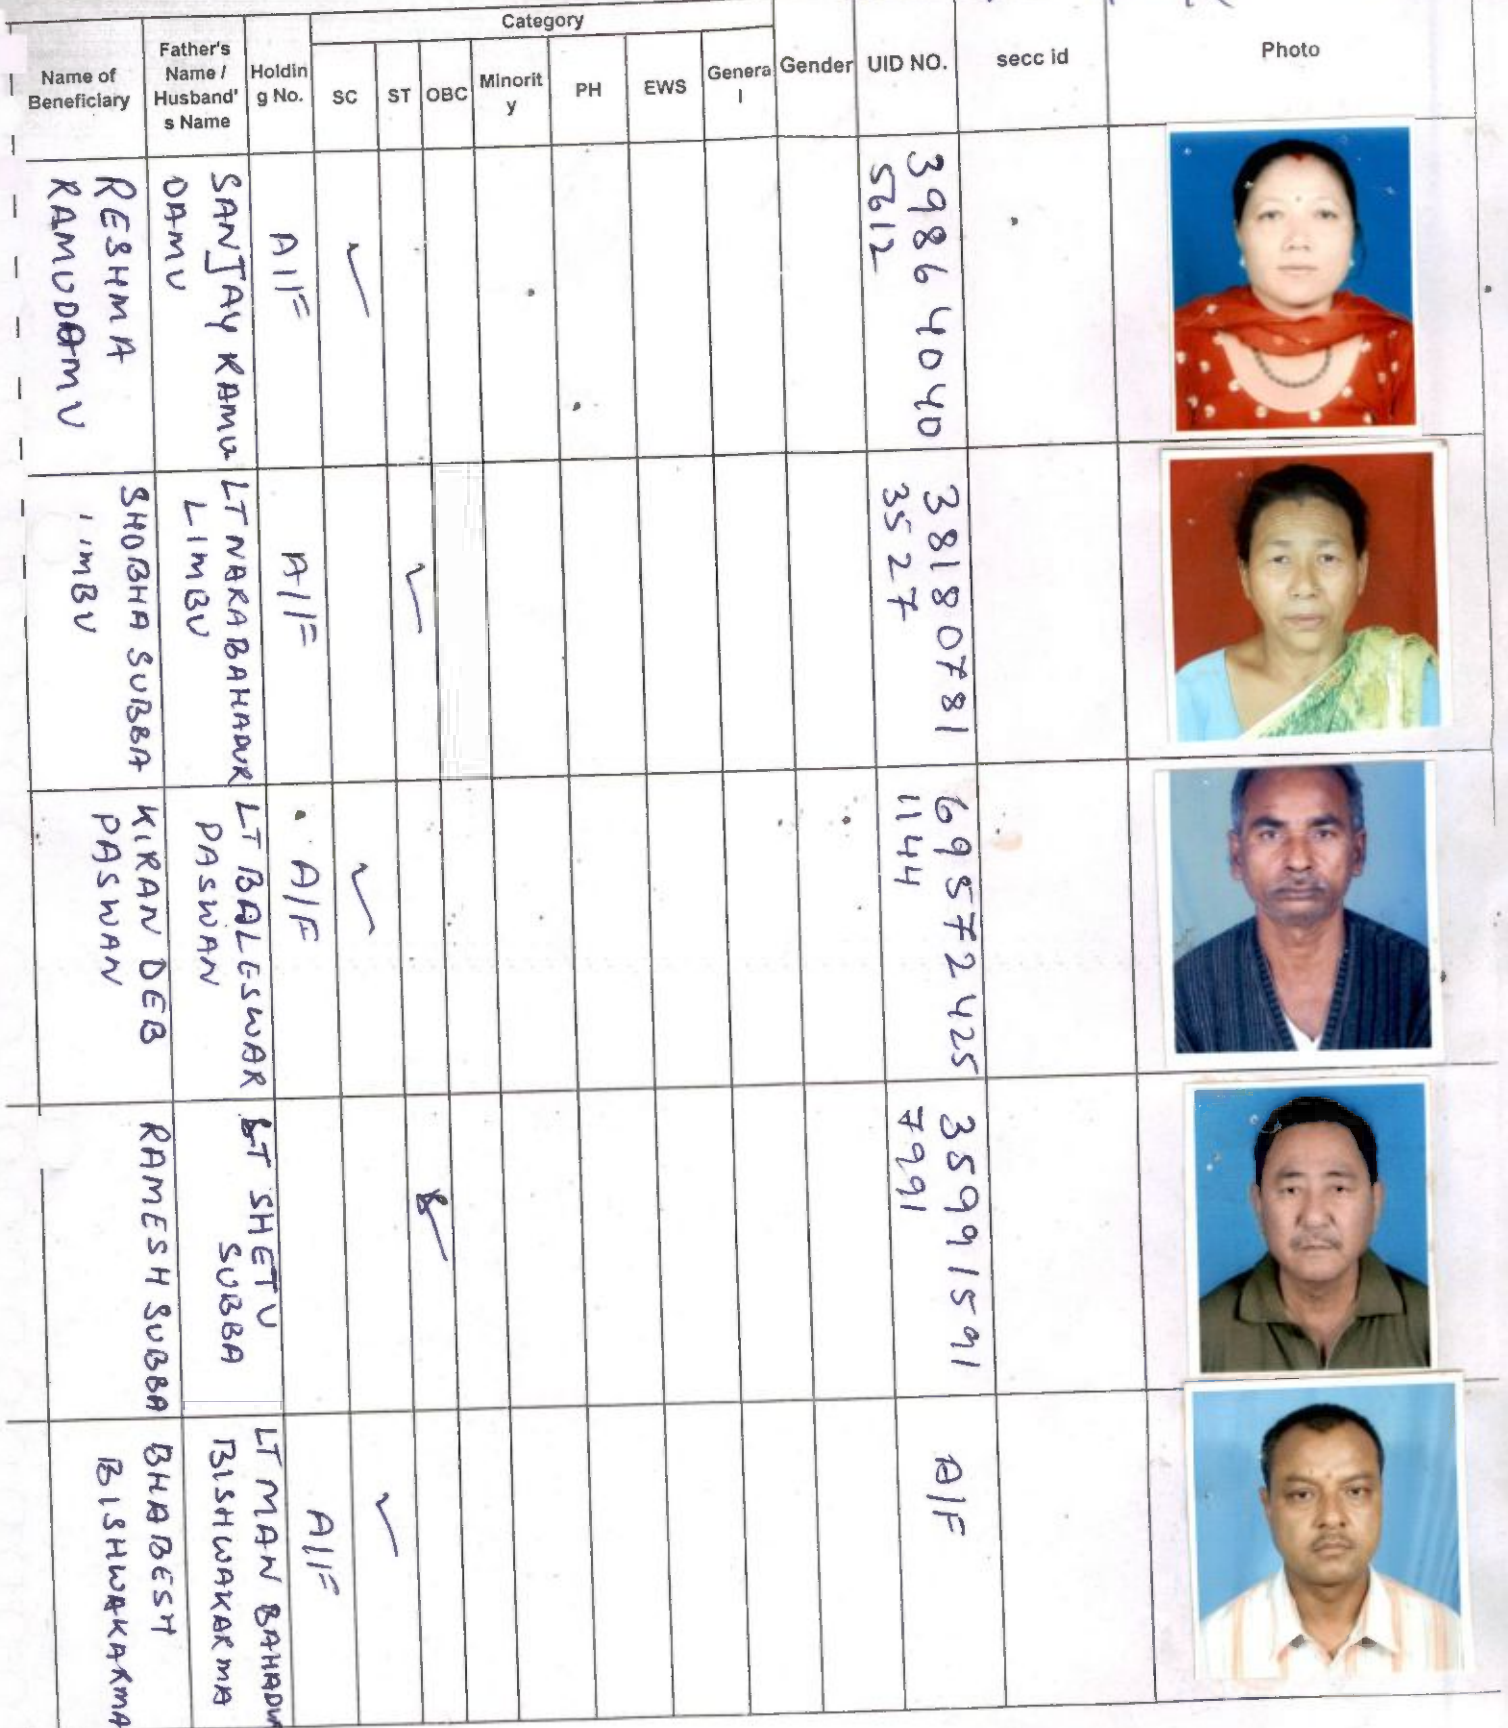 Category
Name of Beneficiary
Father's Name / Husband's Name
Holding No.
SC
ST
OBC
Minority
PH
EWS
General
Gender
UID NO.
secc id
Photo
RESHMA
RAMUDAMU
SANJAY RAMU
DAMU
A/F
✓
3986 4040
5612
SHOBHA SUBBA
LT NARABAHADUR
LIMBU
A/F
✓
38180781
3527
KIRAN DEB
PASWAN
LT BALESWAR
PASWAN
A/F
✓
69572425
1144
RAMESH SUBBA
LT SHETU
SUBBA
✓
35991591
7991
BHABESH
BISHWAKARMA
LT MAN BAHADUR
BISHWAKARMA
A/F
✓
A/F